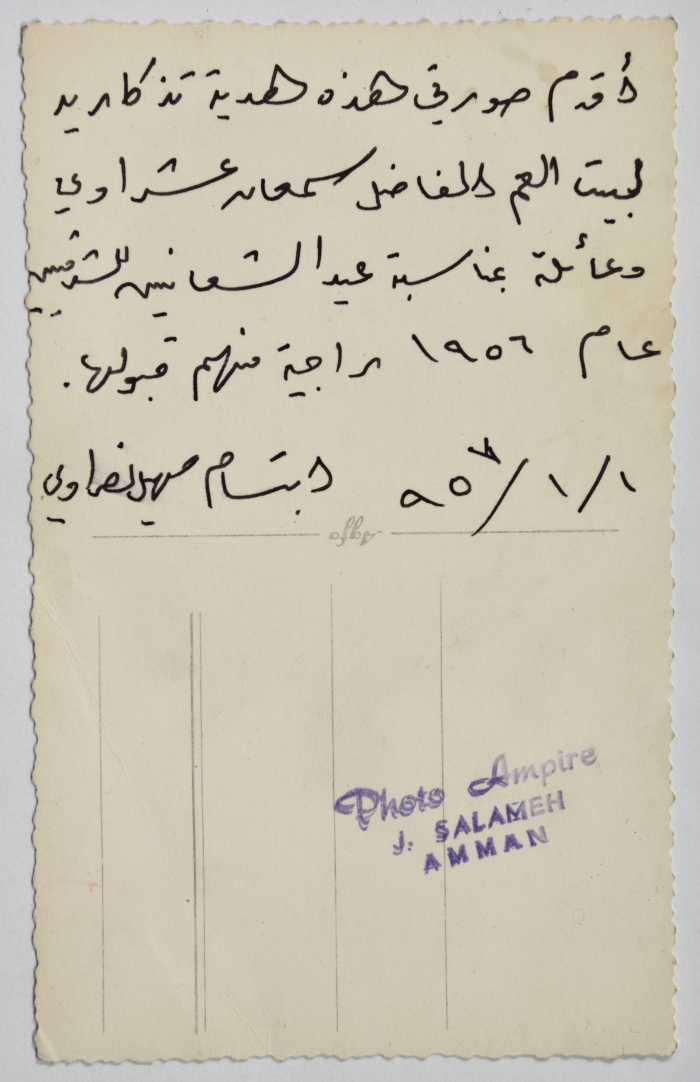 أقدم صورتي هذه هدية تذكارية
لبيت العم الفاضل سمعان عشراوي
وعائلة بمناسبة عيد الشعانين للشرقيين
عام ١٩٥٦ راجية منهم قبولها.
١/١/٩٥٧ ابتسام
Agfa
Photo Ampire
J. SALAMEH
AMMAN